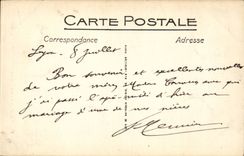 CARTE POSTALE
Correspondance Adresse
Lyon 8 Juillet
Bon souvenir et excellentes nouvelles
de votre mère avec qui
j'ai passé l'après-midi d'hier au
mariage d'une de nos nièces